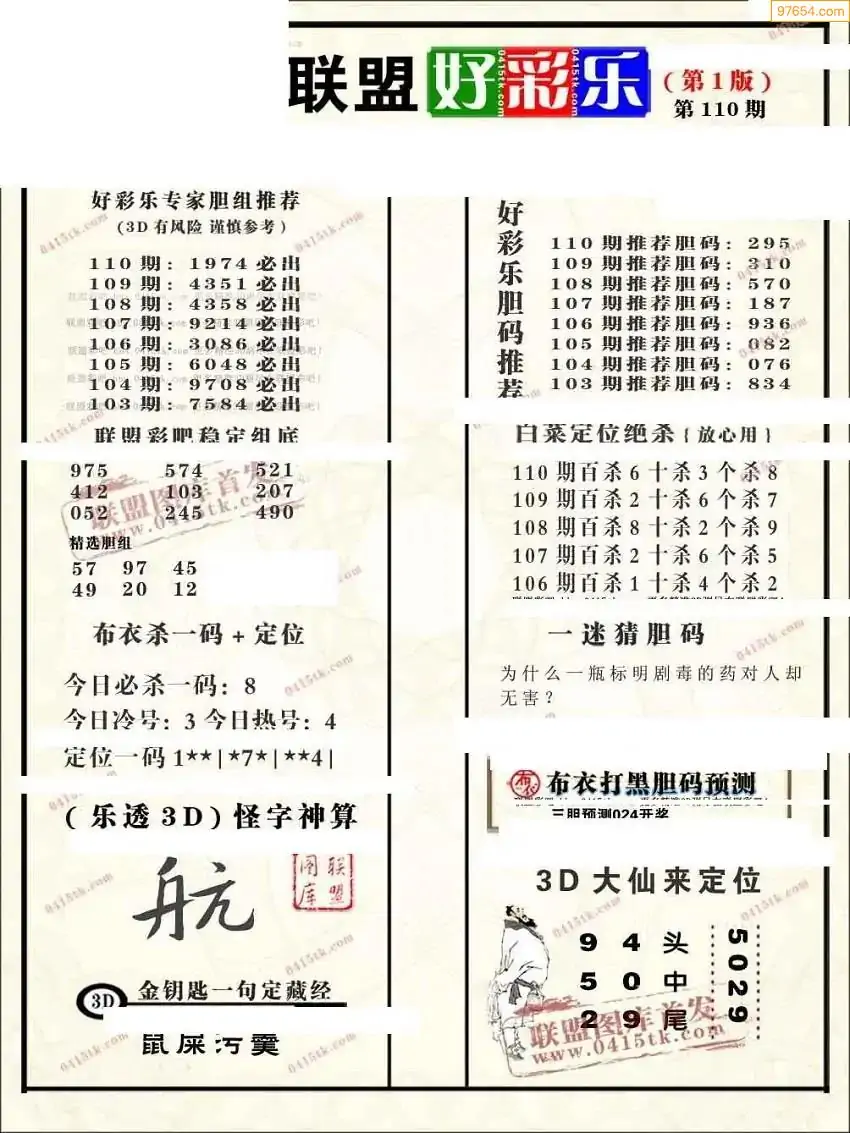 97654.com
联盟好彩乐
(第1版)
第110期
好彩乐专家胆组推荐
(3D有风险 谨慎参考)
110期: 1974必出
109期: 4351必出
108期: 4358必出
107期: 9214必出
106期: 3086必出
105期: 6048必出
104期: 9708必出
103期: 7584必出
联盟彩吧稳定组底
975 574 521
412 103 207
052 245 490
精选胆组
57 97 45
49 20 12
布衣杀一码+定位
今日必杀一码: 8
今日冷号: 3 今日热号: 4
定位一码 1**|*7*|**4|
(乐透3D)怪字神算
航
联盟图库
3D 金钥匙一句定藏经
鼠屎污羹
好彩乐胆码推荐
110期推荐胆码: 295
109期推荐胆码: 310
108期推荐胆码: 570
107期推荐胆码: 187
106期推荐胆码: 936
105期推荐胆码: 082
104期推荐胆码: 076
103期推荐胆码: 834
白菜定位绝杀{放心用}
110期百杀6十杀3个杀8
109期百杀2十杀6个杀7
108期百杀8十杀2个杀9
107期百杀2十杀6个杀5
106期百杀1十杀4个杀2
一迷猜胆码
为什么一瓶标明剧毒的药对人却
无害?
布衣 布衣打黑胆码预测
三胆预测024开奖
3D大仙来定位
9 4 头
5 0 中
2 9 尾
5029
联盟图库首发
www.0415tk.com